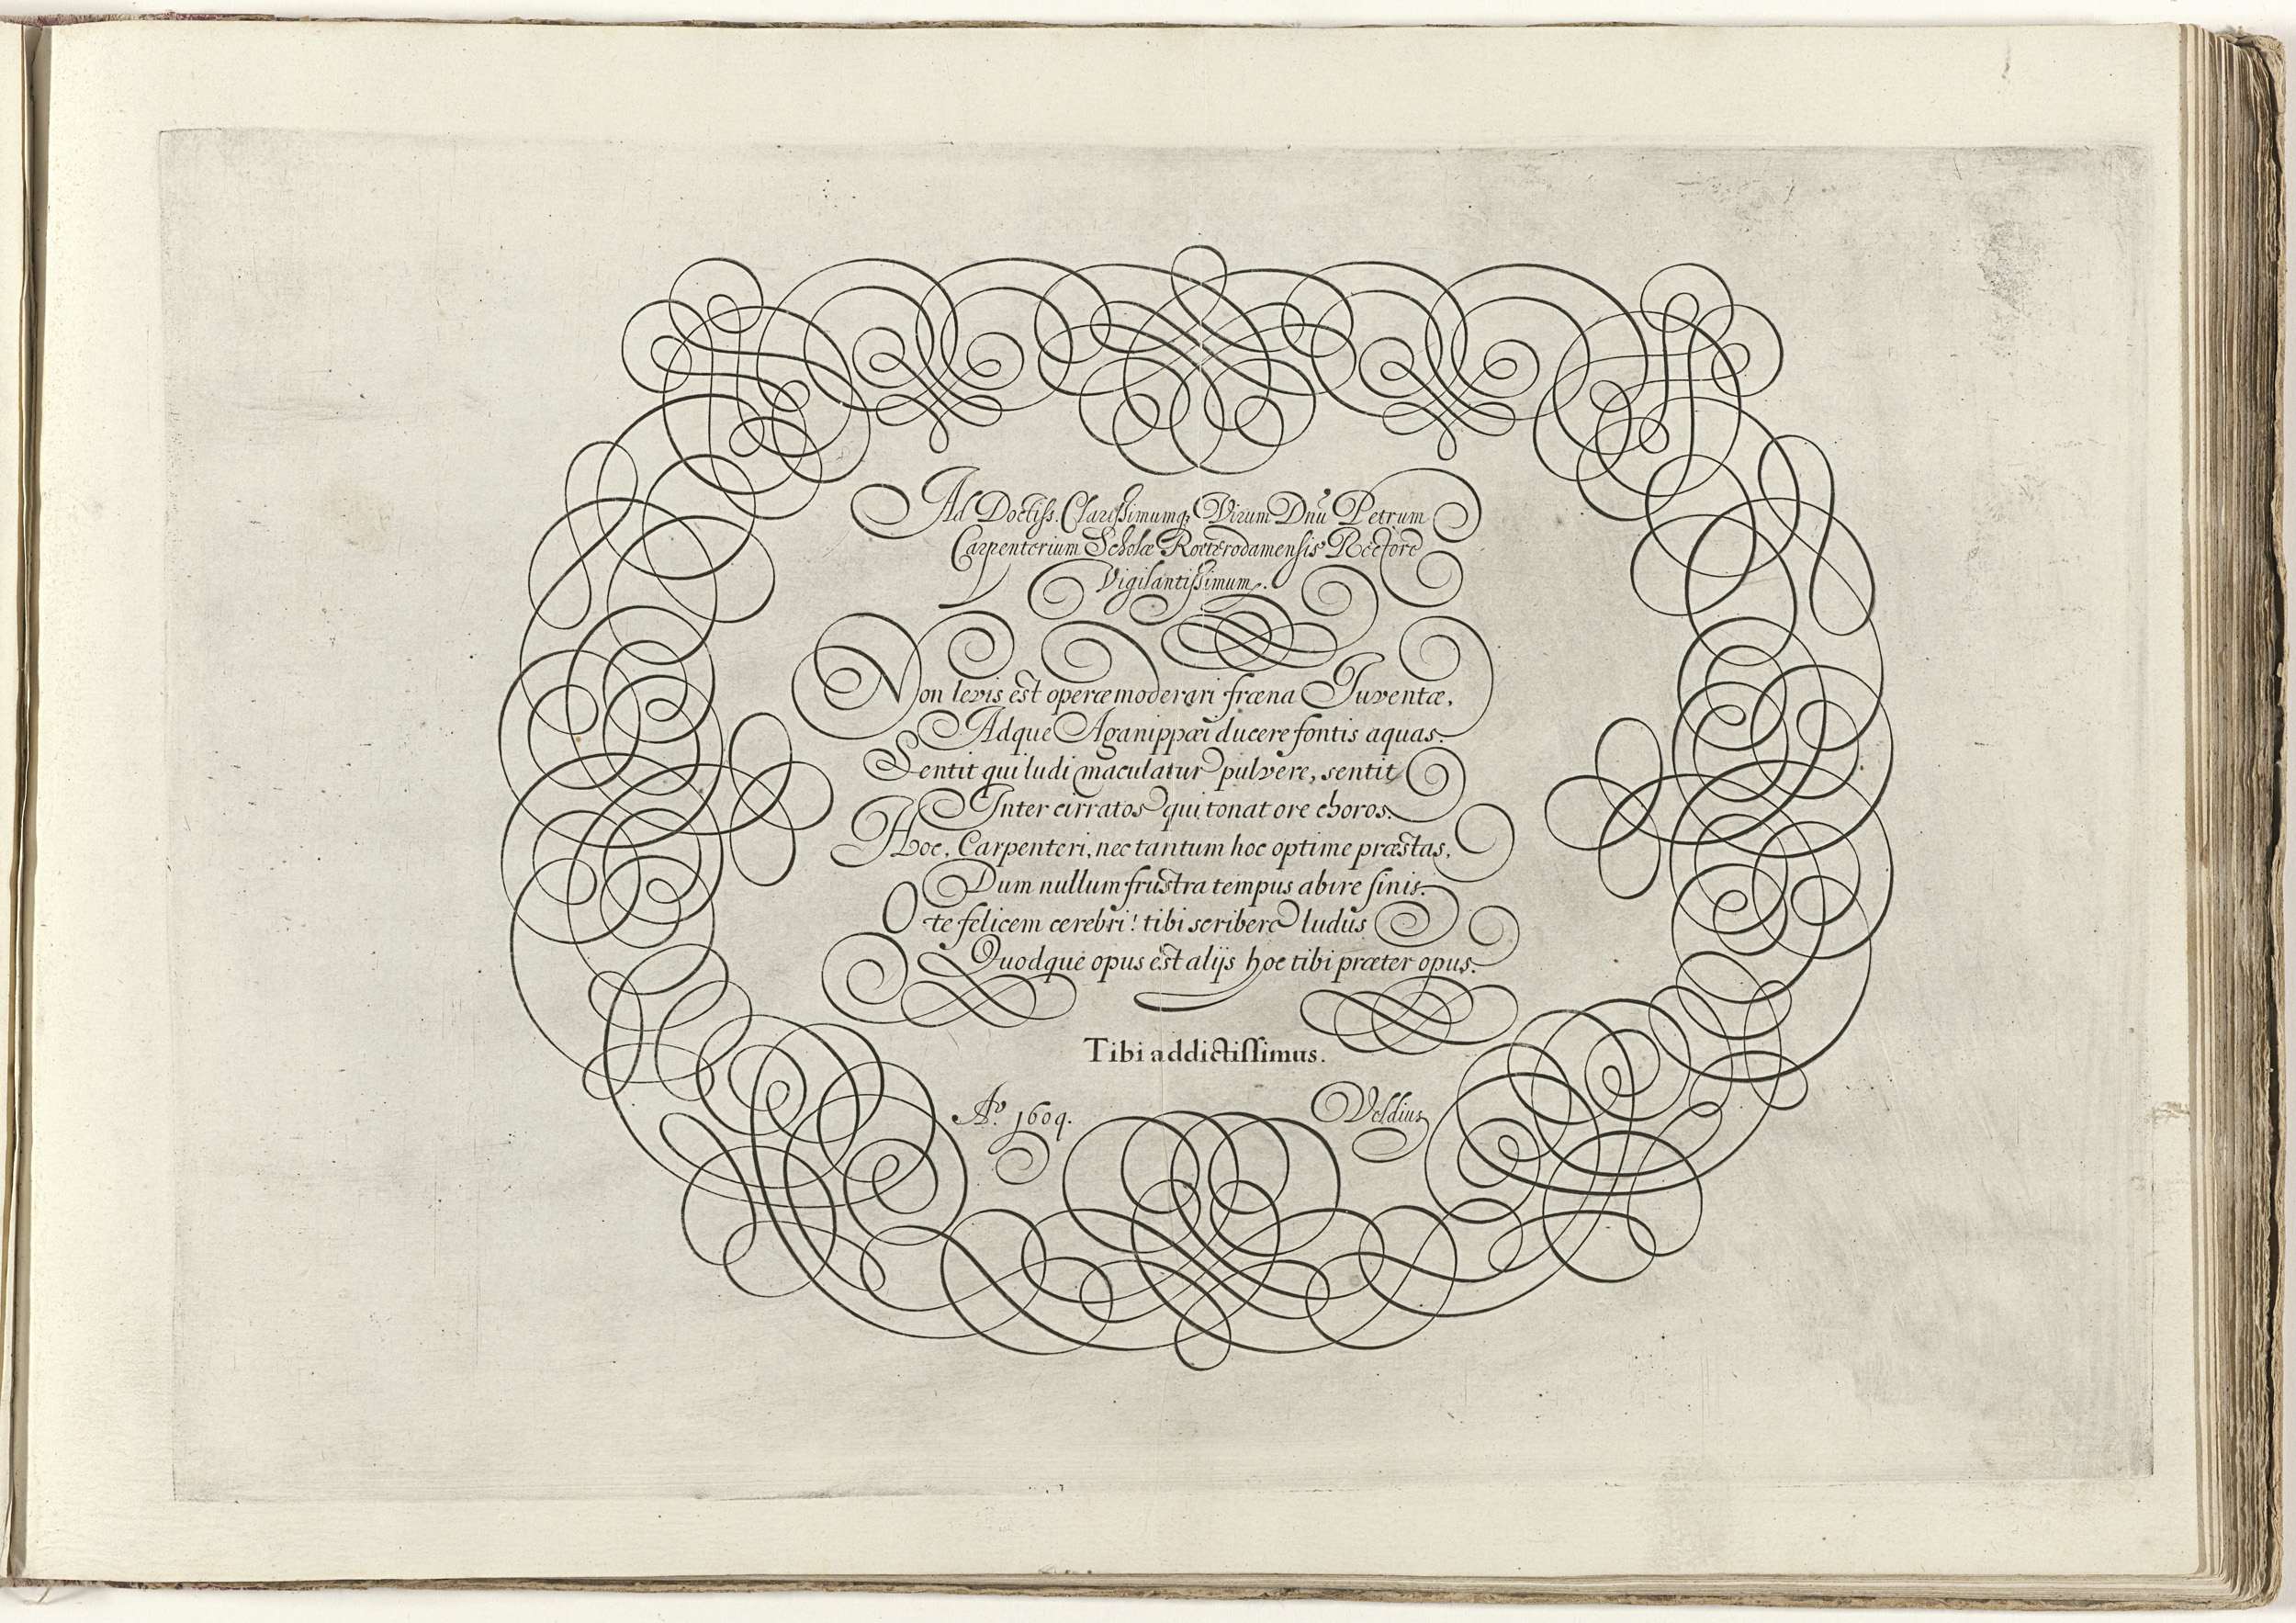 Ad Doctiss. Clarissimumq; Virum Dnū Petrum
Carpenterium Scholæ Rotterodamensis Rectorē
Vigilantissimum.
Non levis est operæ moderari fræna Juventæ,
Adque Aganippæi ducere fontis aquas.
Sentit qui ludi maculatur pulvere, sentit
Inter cirratos qui tonat ore choros.
Hoc, Carpenteri, nec tantum hoc optime præstas,
Dum nullum frustra tempus abire sinis.
O te felicem cerebri! tibi scribere ludus
Quodque opus est alijs hoc tibi præter opus.
Tibi addictissimus.
Aº. 1609. Veldius